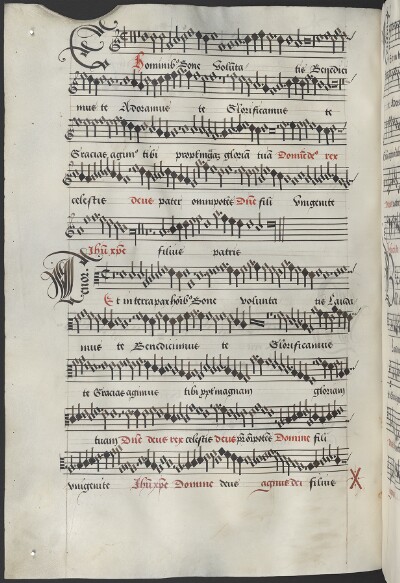 hominib' bone volunta tis Benedici
mus te Adoramus te Glorificamus te
Gracias agim' tibi propt' mag̃ gloriã tuã Domine de' rex
celestis deus pater omnipotẽs Dñe fili vnigenite
Jhũ xp̃e filius patris
Tenor.
Et in terra pax hoĩb' bone volunta tis Lauda
mus te Benedicimus te Glorificamus
te Gracias agimus tibi ppt' magnam gloriam
tuam Dñe deus rex celestis deus p̃r om̃ipotẽs Domine fili
vnigenite Jhũ xp̃e Domine deus agnus dei filius